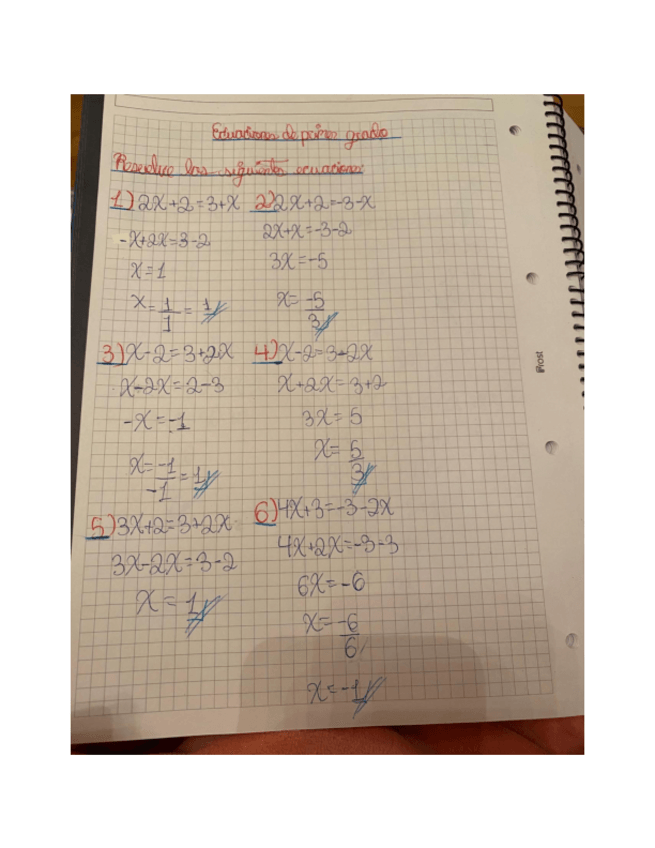 Ecuaciones de primer grado
Resuelve las siguientes ecuaciones
1) 2X+2=3+X
-X+2X=3-2
X=1
X=1/1=1
2) 2X+2=-3-X
2X+X=-3-2
3X=-5
X=-5/3
3) X-2=3+2X
X-2X=2-3
-X=-1
X=-1/-1=1
4) X-2=3-2X
X+2X=3+2
3X=5
X=5/3
5) 3X+2=3+2X
3X-2X=3-2
X=1
6) 4X+3=-3-2X
4X+2X=-3-3
6X=-6
X=-6/6
X=-1